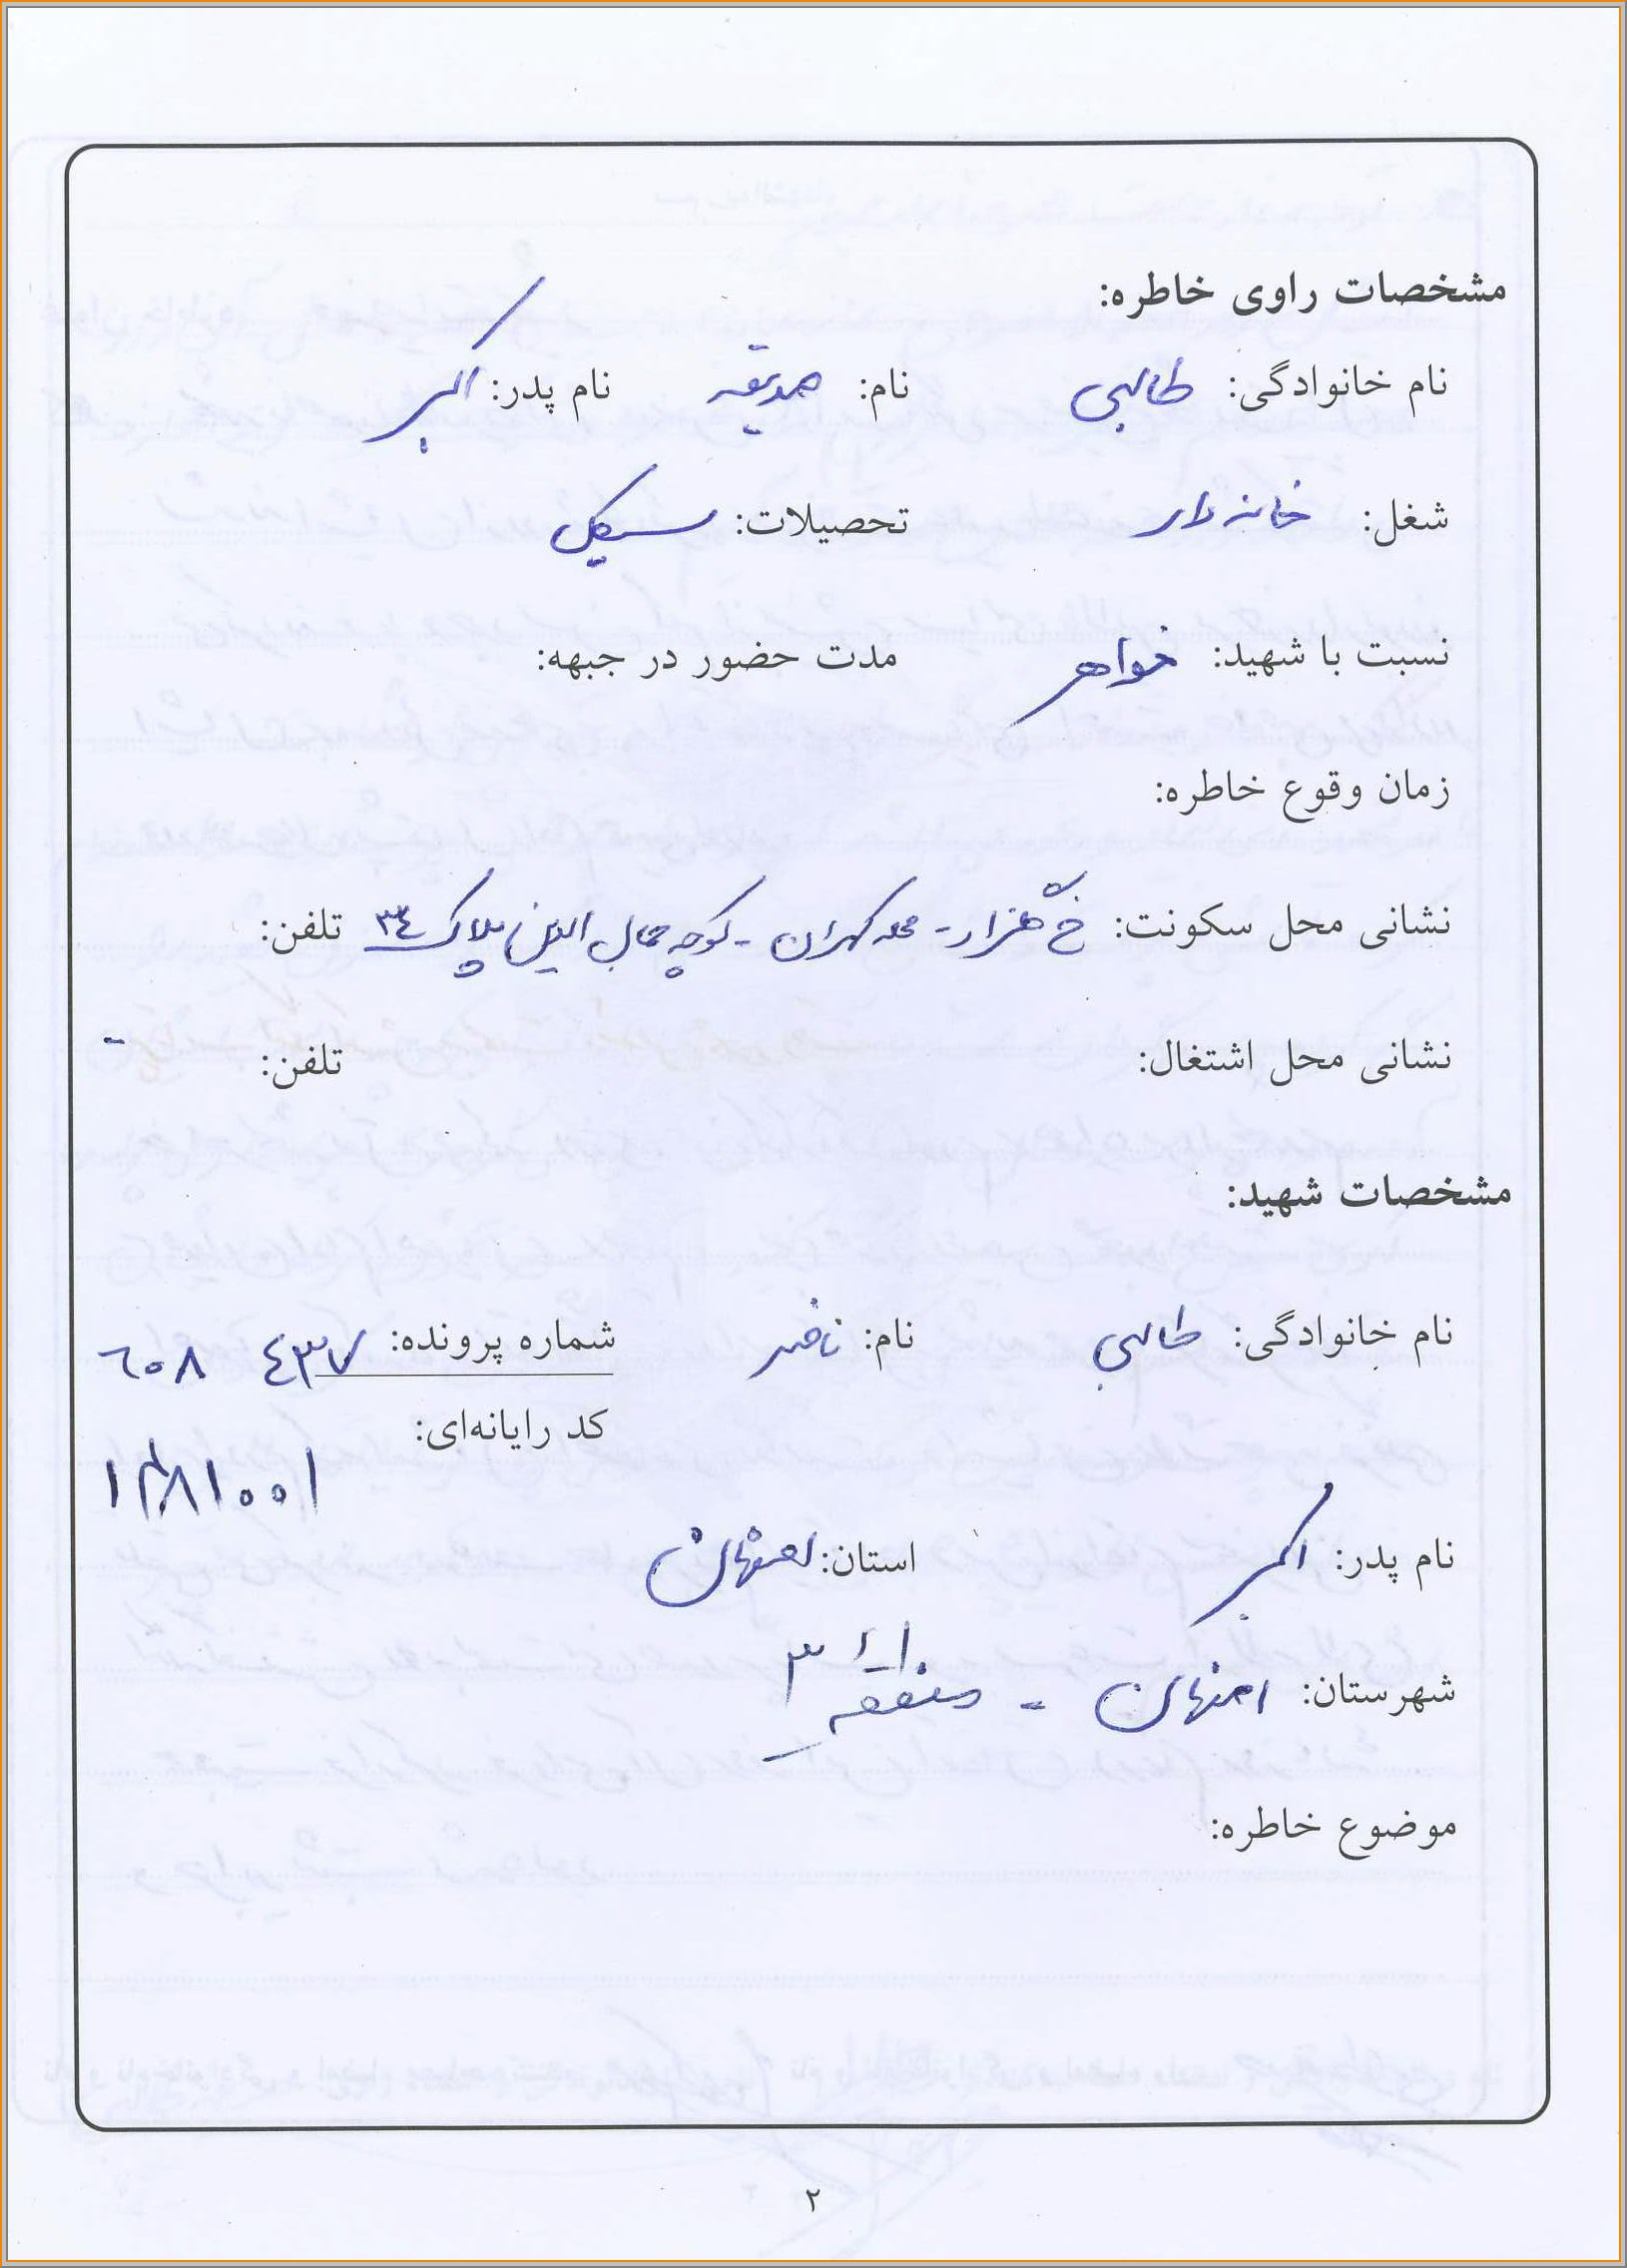 مشخصات راوی خاطره:
نام خانوادگی: طالبی نام: صدیقه نام پدر: اکبر
شغل: خانه دار تحصیلات: سیکل
نسبت با شهید: خواهر مدت حضور در جبهه:
زمان وقوع خاطره:
نشانی محل سکونت: خ هزار - محله کهران - کوچه جمال الدین پلاک ٣٤ تلفن:
نشانی محل اشتغال: تلفن: -
مشخصات شهید:
نام خانوادگی: طالبی نام: ناصر شماره پرونده: ٤٣٧ ٦٥٨
کد رایانه‌ای:
نام پدر: اکبر استان: اصفهان
شهرستان: اصفهان - منطقه ٣
موضوع خاطره:
٢